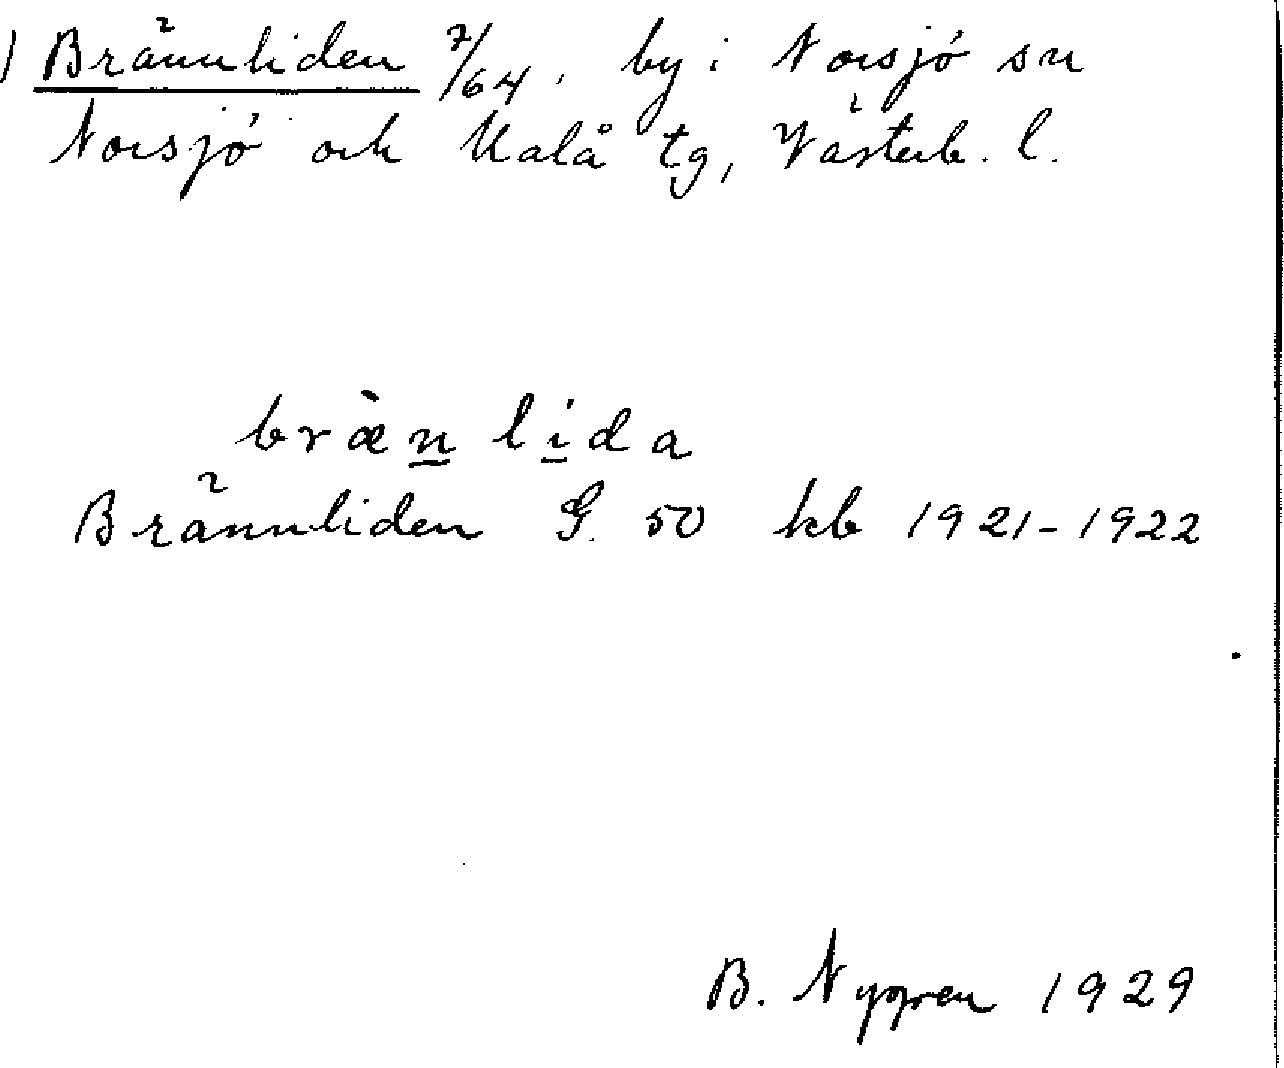 ) Brännliden 7/64. by i Norsjö sn
Norsjö och Malå tg, Västerb. l.
bræ̀n̲ li̲da
Brännliden G. 50 kb 1921-1922
B. Nygren 1929